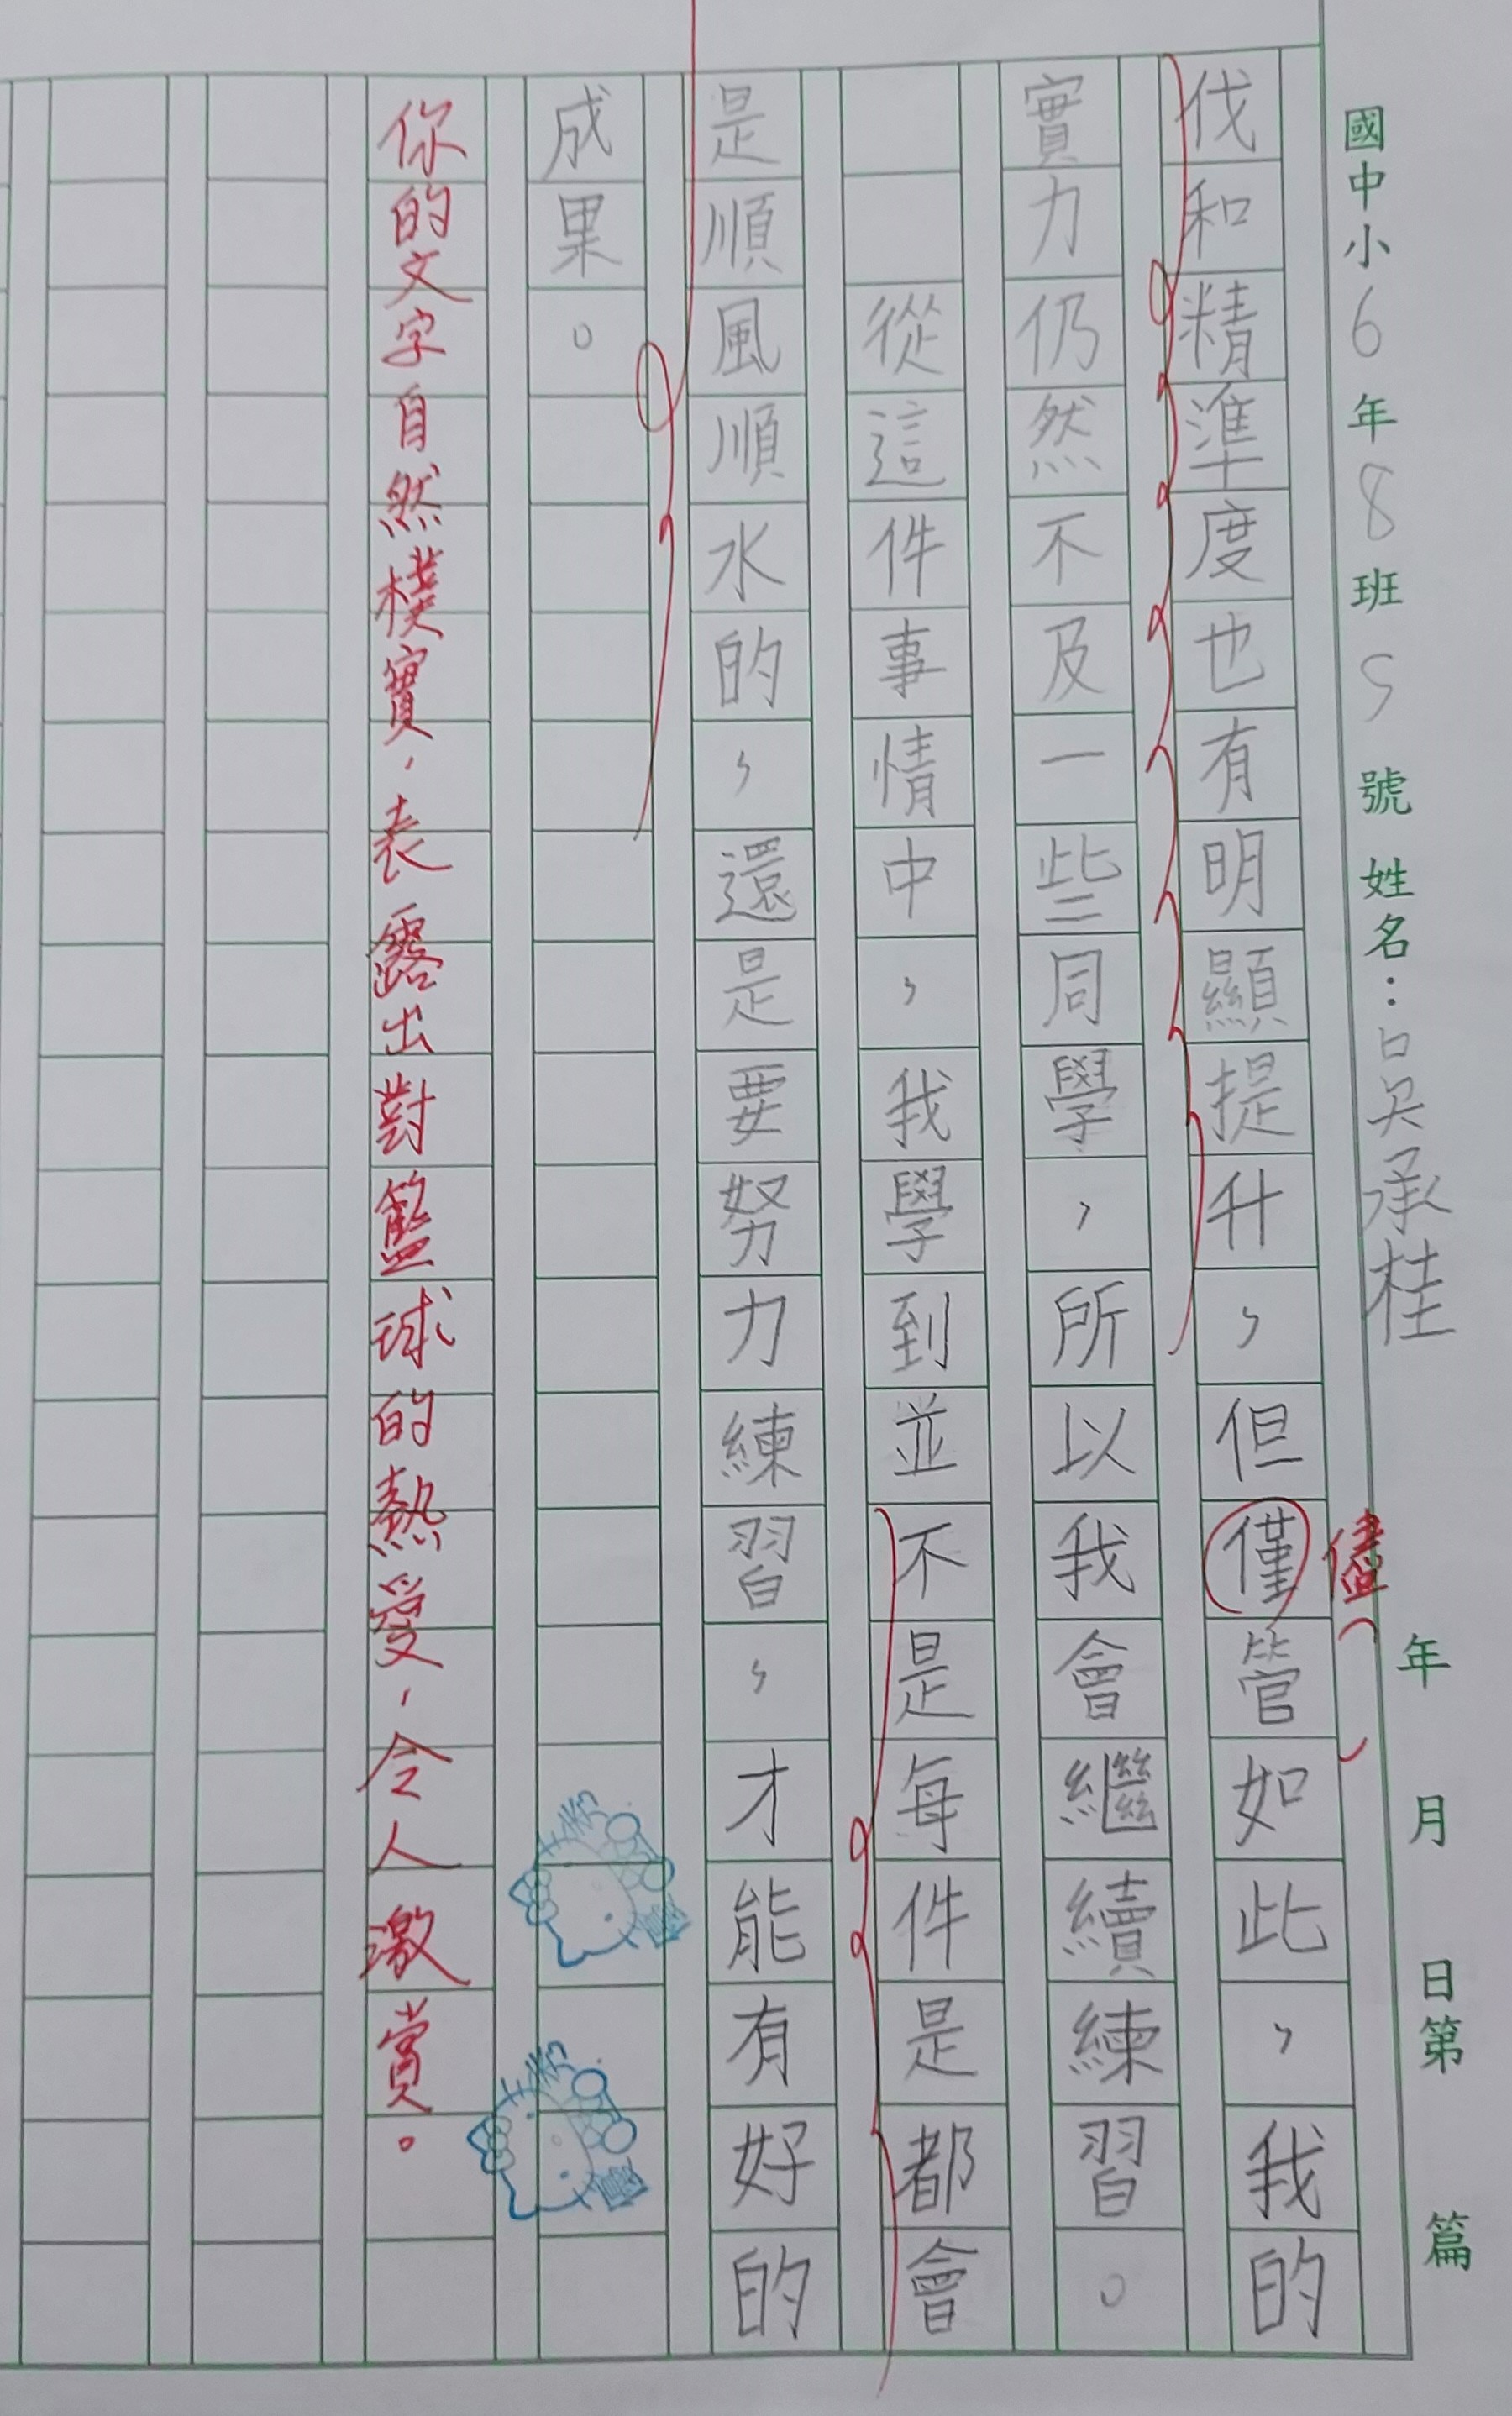 國中小6年8班5號姓名：吳承桂 年 月 日第 篇
伐和精準度也有明顯提升，但僅管如此，我的
儘
實力仍然不及一些同學，所以我會繼續練習。
從這件事情中，我學到並不是每件是都會
是順風順水的，還是要努力練習，才能有好的
成果。
你的文字自然樸實，表露出對籃球的熱愛，令人激賞。